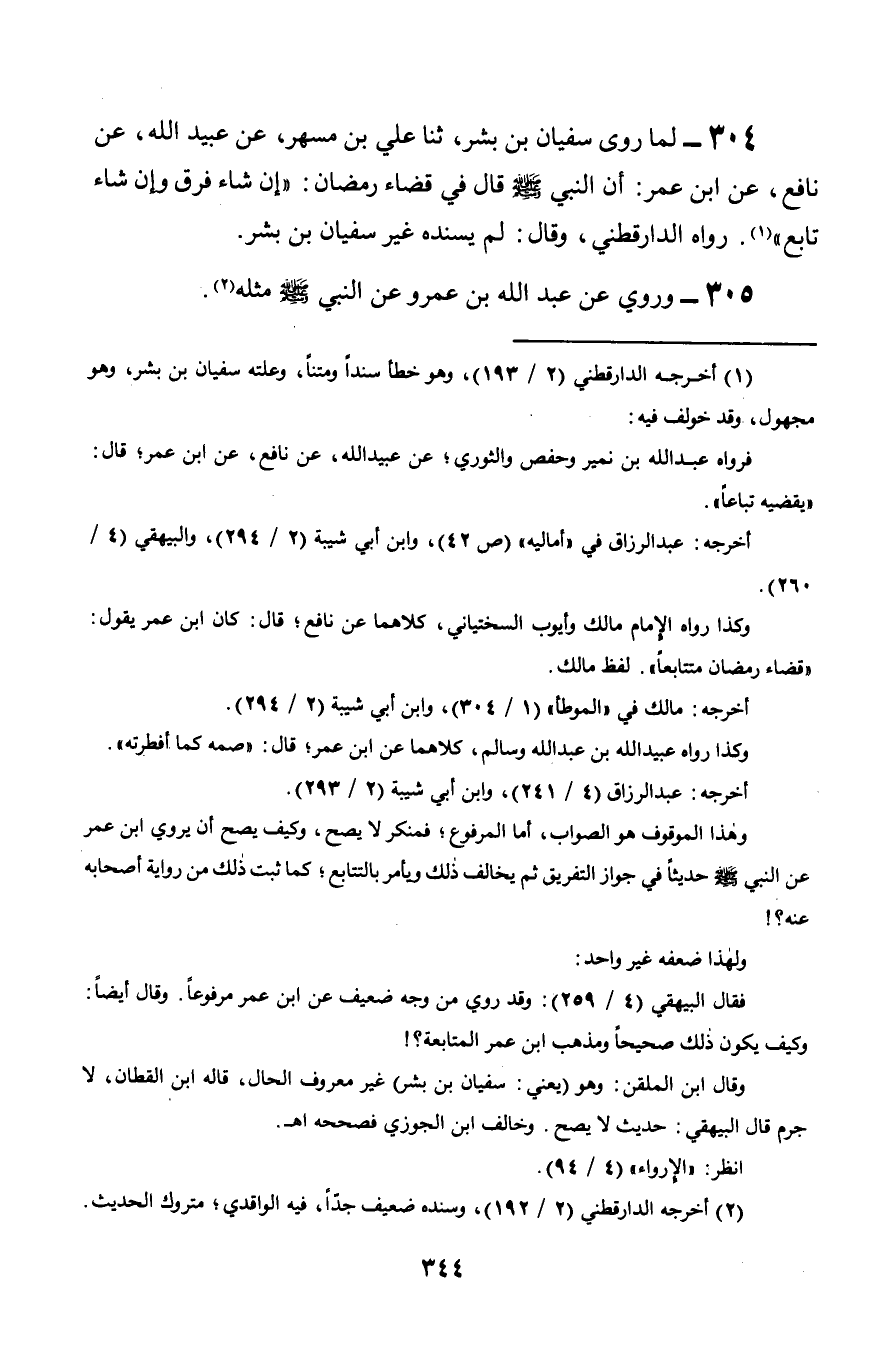 ٣٠٤ ـ لما روى سفيان بن بشر، ثنا علي بن مسهر، عن عبيد الله، عن
نافع، عن ابن عمر: أن النبي ﷺ قال في قضاء رمضان: «إن شاء فرق وإن شاء
تابع»(١). رواه الدارقطني، وقال: لم يسنده غير سفيان بن بشر.
٣٠٥ ـ وروي عن عبد الله بن عمرو عن النبي ﷺ مثله(٢).
(١) أخرجه الدارقطني (٢ / ١٩٣)، وهو خطأ سنداً ومتناً، وعلته سفيان بن بشر، وهو
مجهول، وقد خولف فيه:
فرواه عبدالله بن نمير وحفص والثوري؛ عن عبيدالله، عن نافع، عن ابن عمر؛ قال:
«يقضيه تباعاً».
أخرجه: عبدالرزاق في «أماليه» (ص ٤٢)، وابن أبي شيبة (٢ / ٢٩٤)، والبيهقي (٤ /
٢٦٠).
وكذا رواه الإمام مالك وأيوب السختياني، كلاهما عن نافع؛ قال: كان ابن عمر يقول:
«قضاء رمضان متتابعاً». لفظ مالك.
أخرجه: مالك في «الموطأ» (١ / ٣٠٤)، وابن أبي شيبة (٢ / ٢٩٤).
وكذا رواه عبيدالله بن عبدالله وسالم، كلاهما عن ابن عمر؛ قال: «صمه كما أفطرته».
أخرجه: عبدالرزاق (٤ / ٢٤١)، وابن أبي شيبة (٢ / ٢٩٣).
وهٰذا الموقوف هو الصواب، أما المرفوع؛ فمنكر لا يصح، وكيف يصح أن يروي ابن عمر
عن النبي ﷺ حديثاً في جواز التفريق ثم يخالف ذٰلك ويأمر بالتتابع؛ كما ثبت ذٰلك من رواية أصحابه
عنه؟!
ولهٰذا ضعفه غير واحد:
فقال البيهقي (٤ / ٢٥٩): وقد روي من وجه ضعيف عن ابن عمر مرفوعاً. وقال أيضاً:
وكيف يكون ذٰلك صحيحاً ومذهب ابن عمر المتابعة؟!
وقال ابن الملقن: وهو (يعني: سفيان بن بشر) غير معروف الحال، قاله ابن القطان، لا
جرم قال البيهقي: حديث لا يصح. وخالف ابن الجوزي فصححه اهـ.
انظر: «الإرواء» (٤ / ٩٤).
(٢) أخرجه الدارقطني (٢ / ١٩٢)، وسنده ضعيف جدّاً، فيه الواقدي؛ متروك الحديث.
٣٤٤